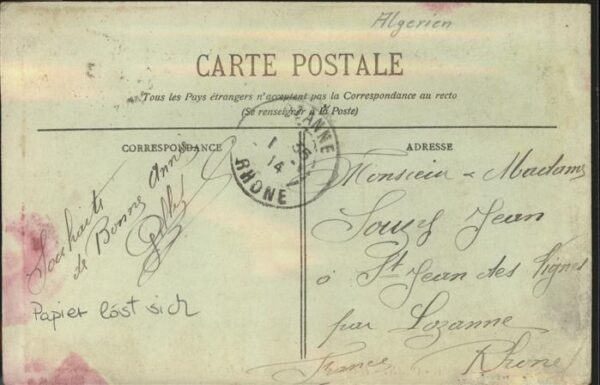 Algerien
CARTE POSTALE
Tous les Pays étrangers n'acceptent pas la Correspondance au recto
(Se renseigner à la Poste)
CORRESPONDANCE
ADRESSE
ZANNE
14
RHONE
Souhaits
de Bonne Année
Papier löst sich
Monsieur & Madame
Jean
à St Jean des Vignes
par Lozanne
Rhone
France